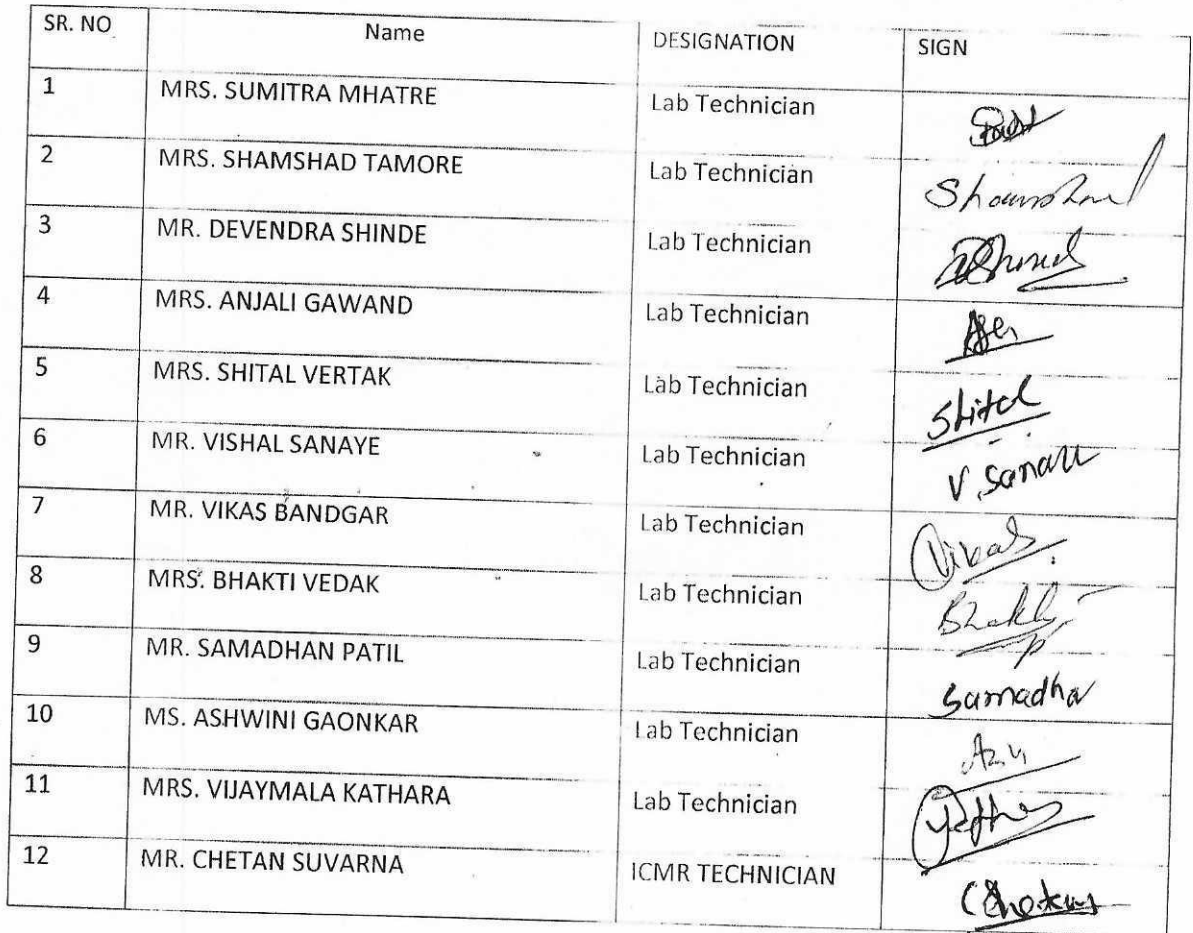 SR. NO Name DESIGNATION SIGN
1 MRS. SUMITRA MHATRE Lab Technician
2 MRS. SHAMSHAD TAMORE Lab Technician Shamshad
3 MR. DEVENDRA SHINDE Lab Technician
4 MRS. ANJALI GAWAND Lab Technician
5 MRS. SHITAL VERTAK Lab Technician Shital
6 MR. VISHAL SANAYE Lab Technician V. Sanaye
7 MR. VIKAS BANDGAR Lab Technician Vikas
8 MRS. BHAKTI VEDAK Lab Technician Bhakti
9 MR. SAMADHAN PATIL Lab Technician Samadha
10 MS. ASHWINI GAONKAR Lab Technician
11 MRS. VIJAYMALA KATHARA Lab Technician
12 MR. CHETAN SUVARNA ICMR TECHNICIAN Chetan